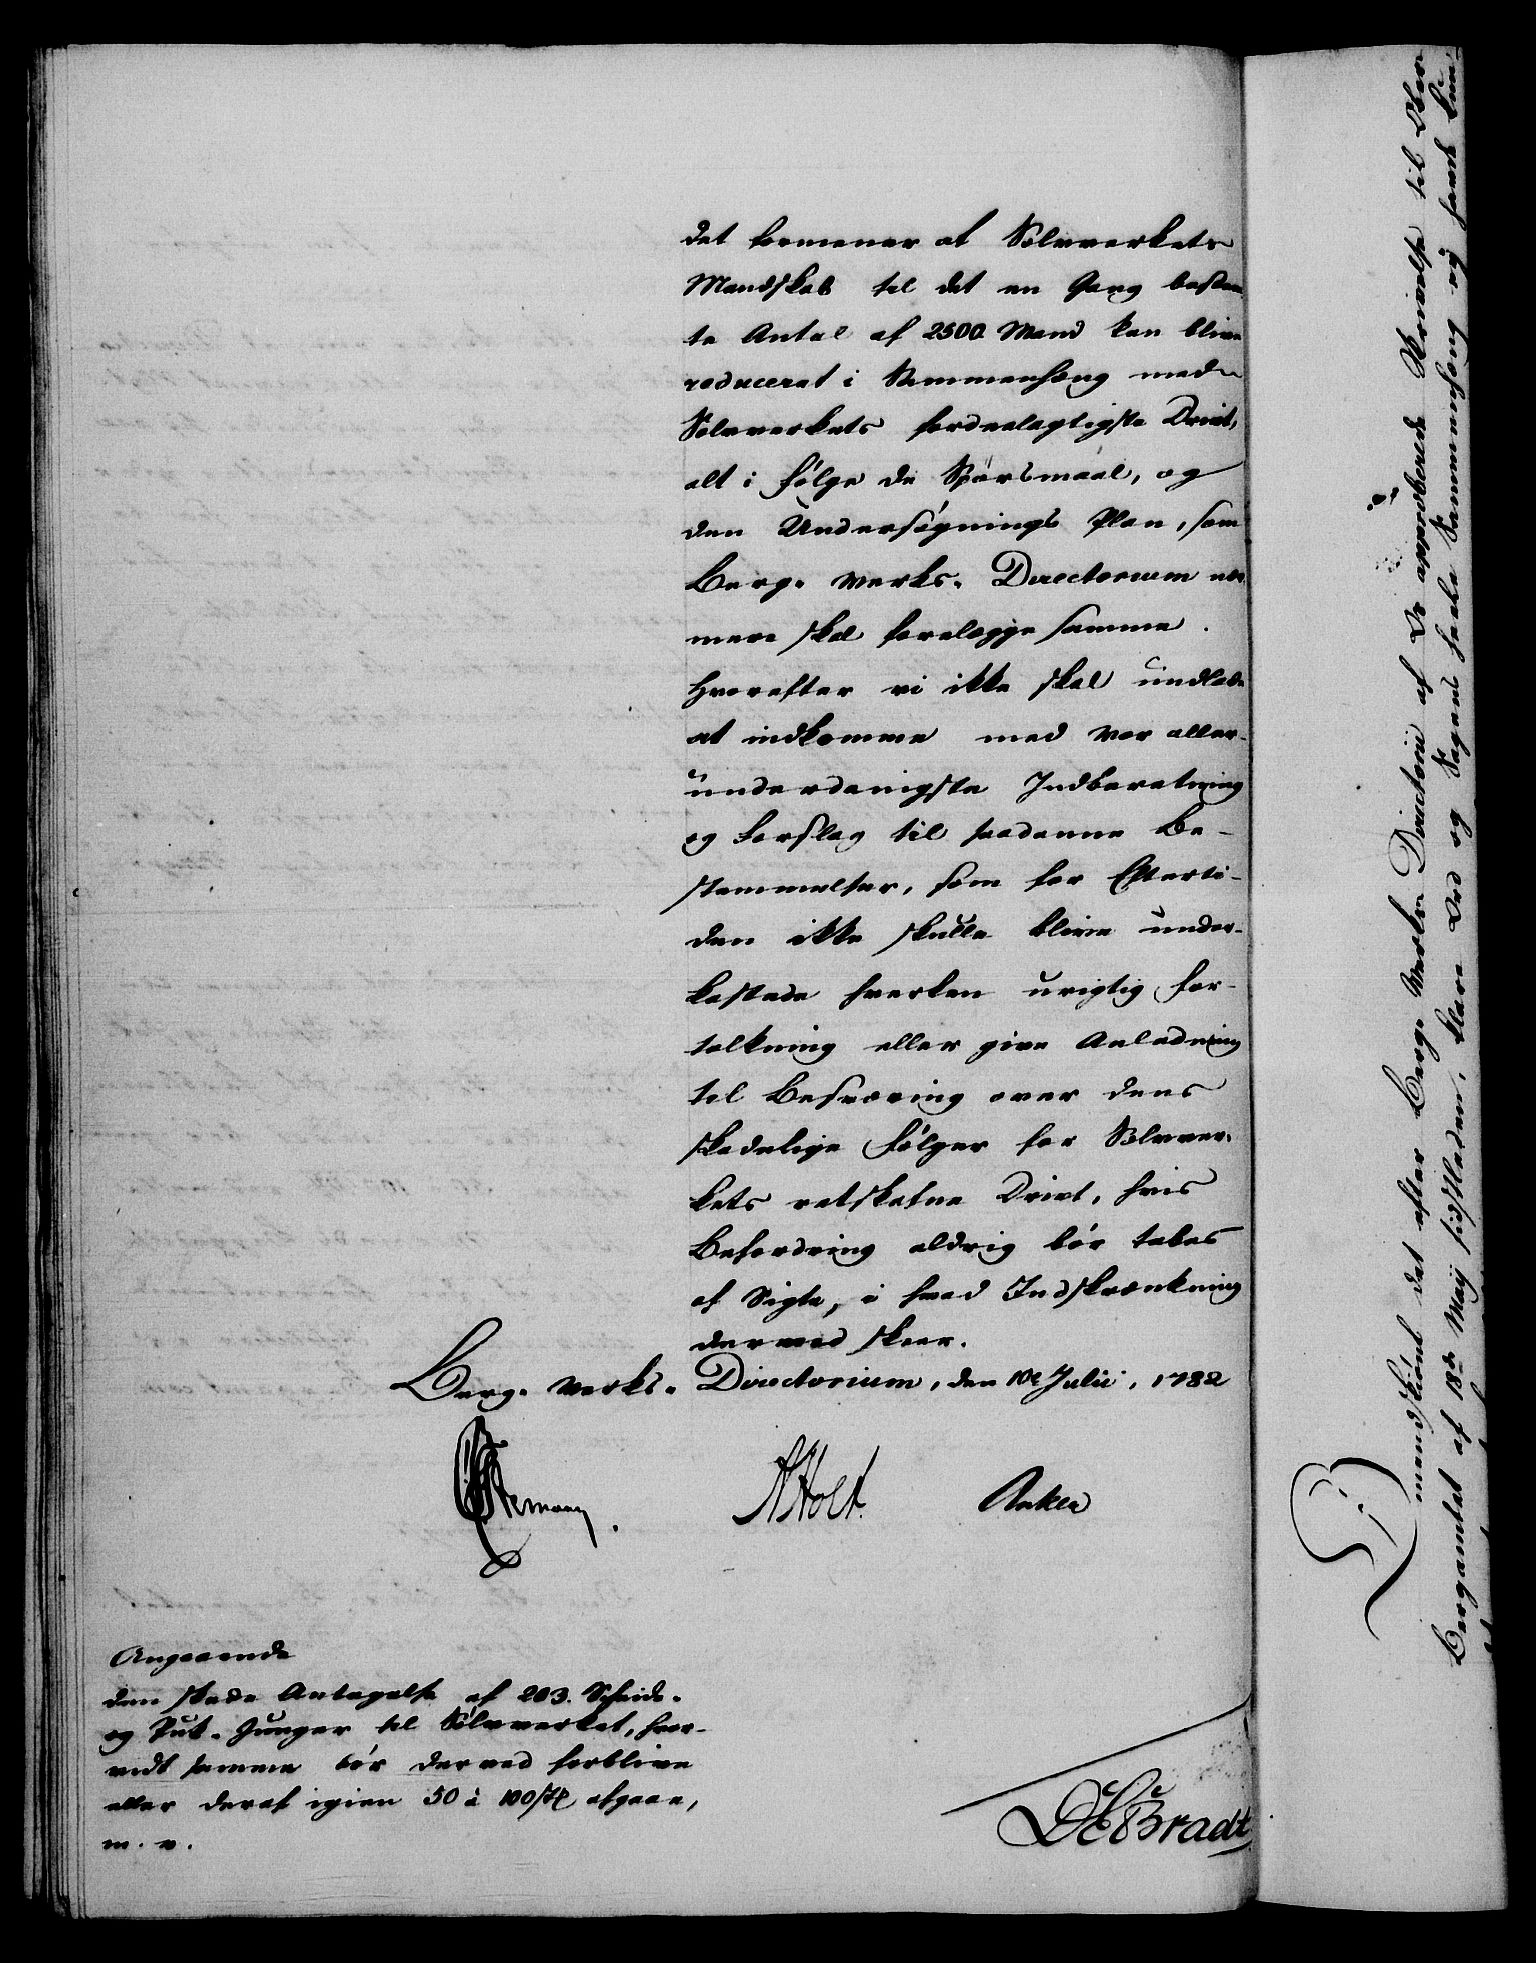 det formener at Sölvverkets
Mandskab til det en Gang bestem
te Antal af 2500 Mand kan blive
reduceret i Sammenhæng med
Sölvverkets fordeelagtigste Drivt,
alt i fölge de Spörsmaal, og
den Undersögnings Plan, som
Berg- Verks- Directorium nær
mere skal forelægge samme.
Hvorefter vi ikke skal undlade
at indkomme med vor aller-
underdanigste Indberetning
og Forslag til saadanne Be-
stemmelser, som for Efterti-
den ikke skulle blive under-
kastede hverken urigtig for-
tolkning eller give Anledning
til Besværing over dens
skadelige Fölger for Sölvver-
kets retskafne Drivt, hvis
Befordring aldrig bör tabes
af Sigte, i hvad Indskrænkning
derved skeer.
Berg- Verks- Directorium, den 10de Julii, 1782
Holt. Anker
Angaaende
den skede Antagelse af 203. Scheide-
og Puk-Junger til Sölvverket, hvor-
vidt samme bör derved forblive
eller deraf igien 50 à 100 afgaae,
m. v.
Bradt
mendskiönt det efter Berg- Verks- Directorii af De approberede Skrivelse til Ober
Bergamtet af 18de Maij sidstleden, klare Ord og Sagens heele Sammenhæng og